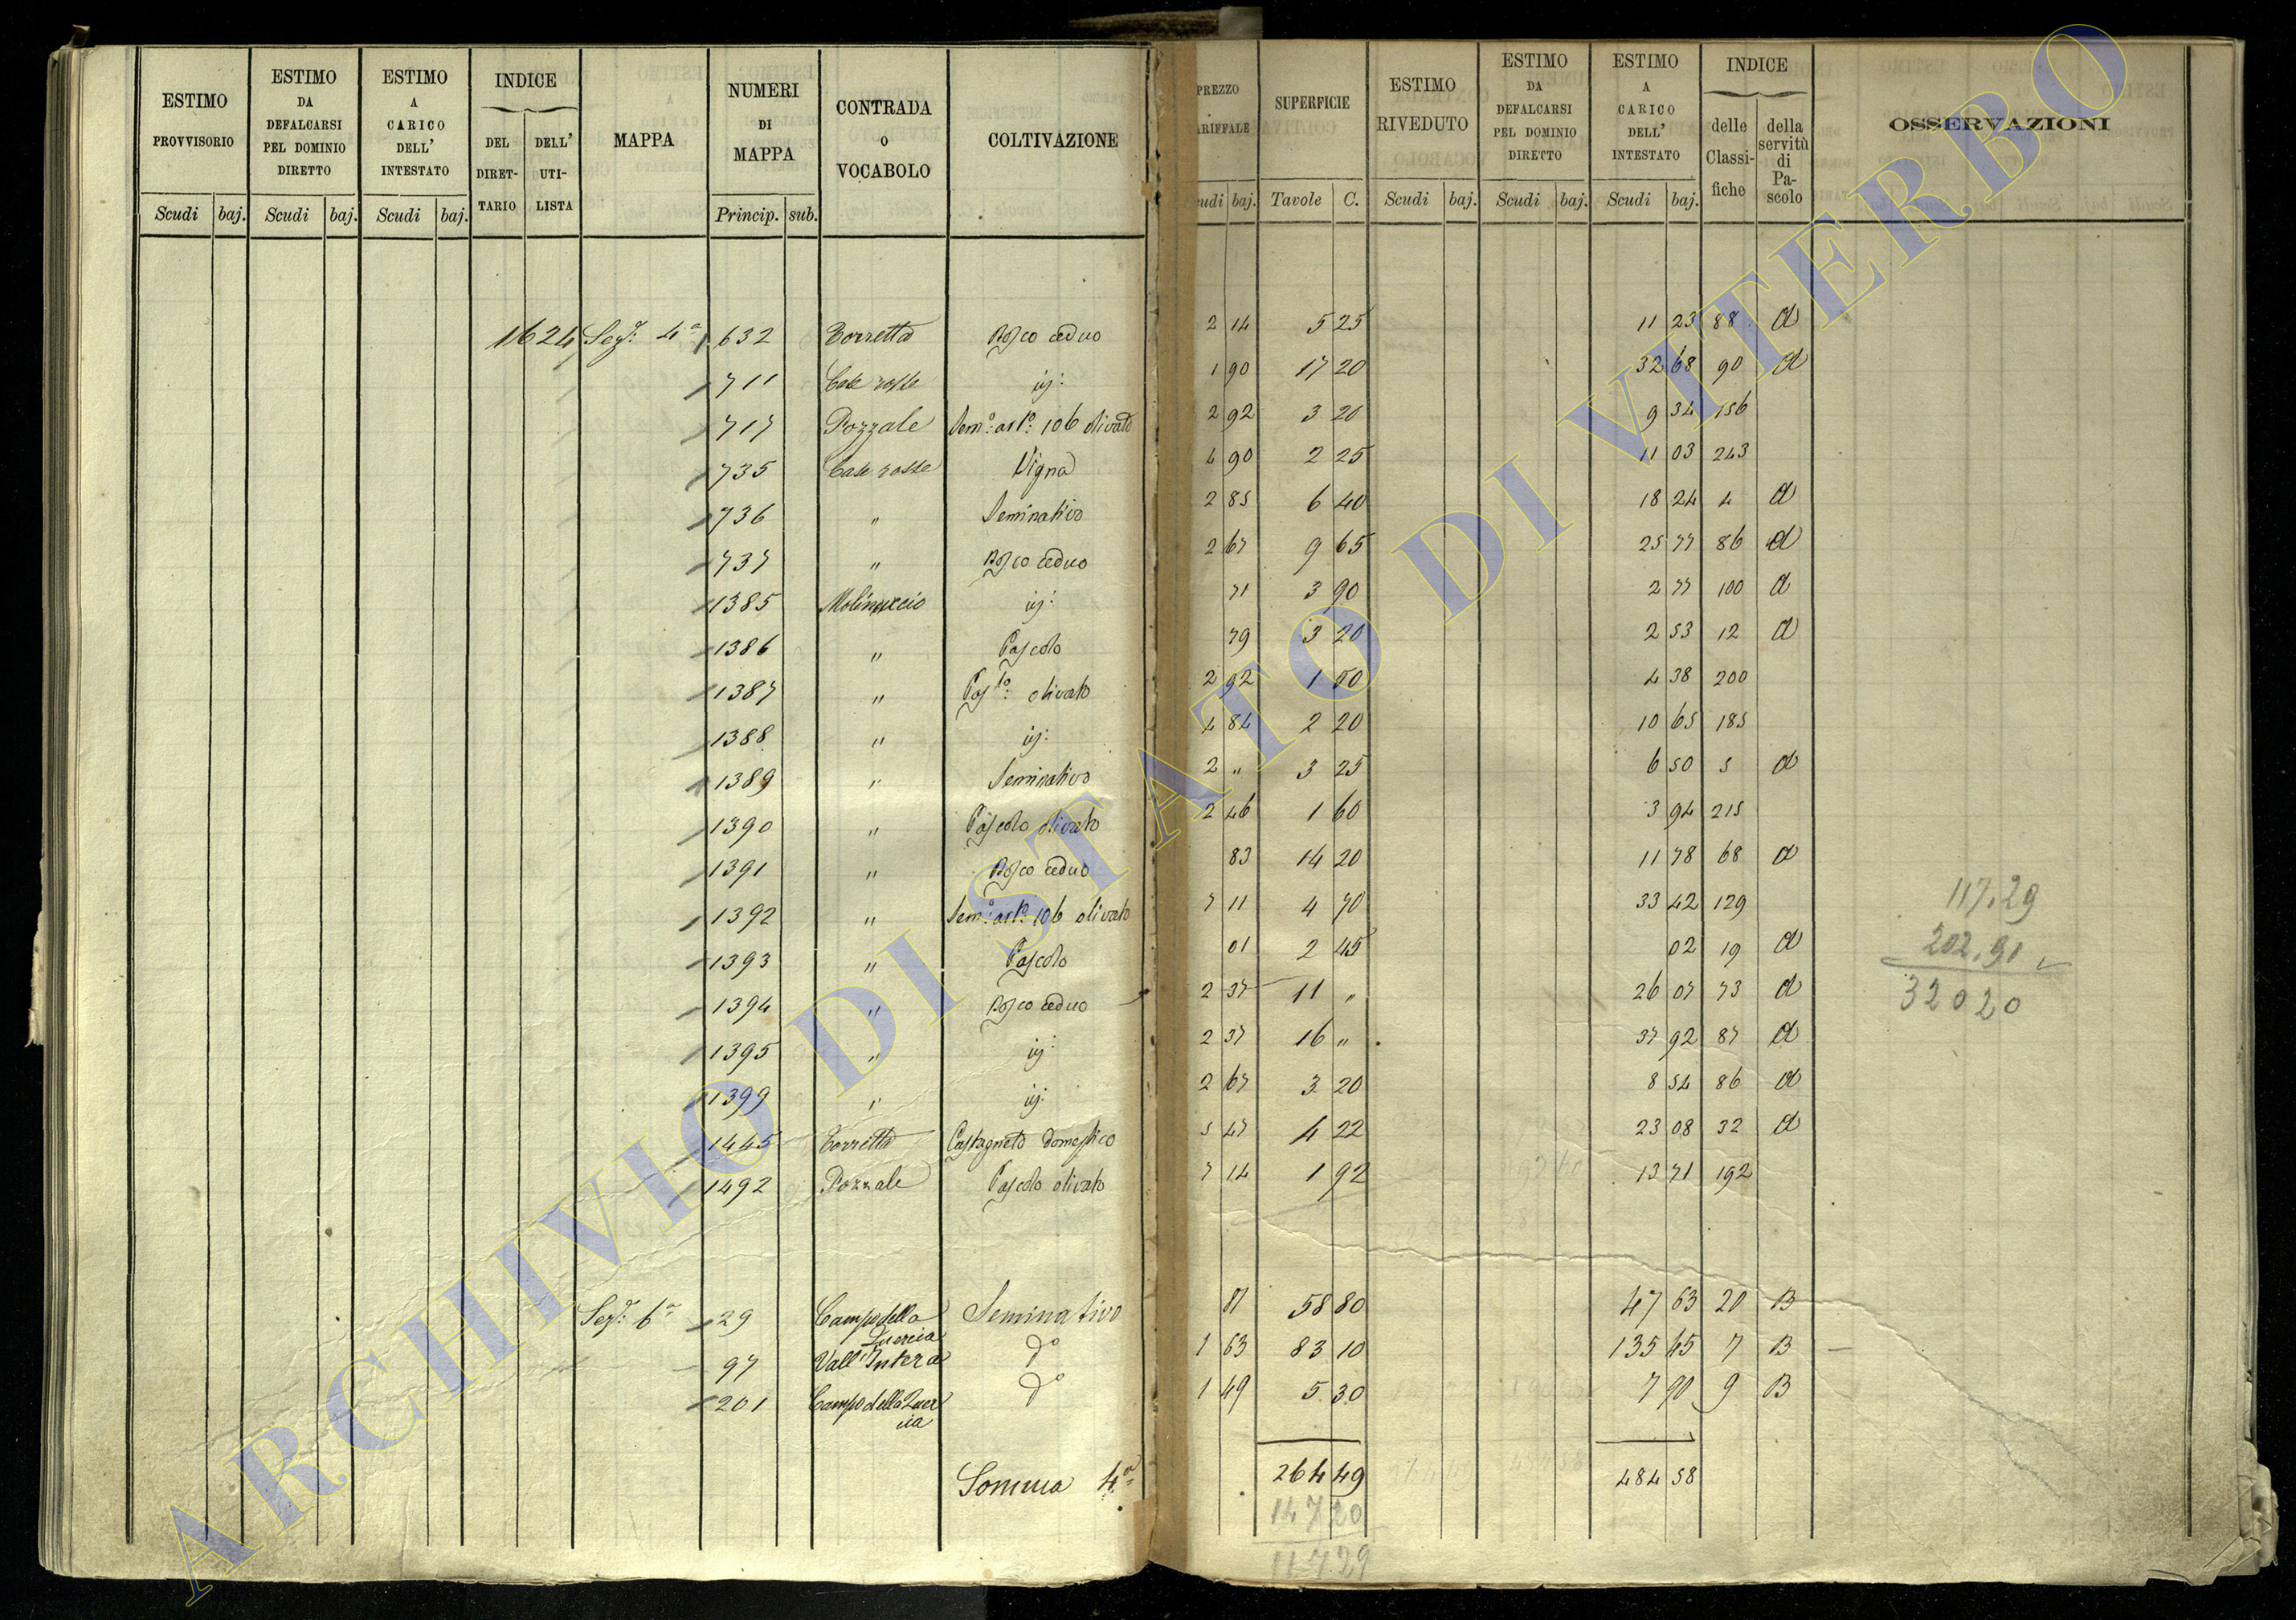 ESTIMO PROVVISORIO
ESTIMO DA DEFALCARSI PEL DOMINIO DIRETTO
ESTIMO A CARICO DELL' INTESTATO
INDICE
DEL DIRETTARIO
DELL' UTILISTA
MAPPA
NUMERI DI MAPPA
CONTRADA O VOCABOLO
COLTIVAZIONE
PREZZO
ARIFFALE
SUPERFICIE
ESTIMO RIVEDUTO
ESTIMO DA DEFALCARSI PEL DOMINIO DIRETTO
ESTIMO A CARICO DELL' INTESTATO
INDICE
delle Classifiche
della servitù di Pascolo
OSSERVAZIONI
Scudi baj. Scudi baj. Scudi baj. Princip. sub. udi baj. Tavole C. Scudi baj. Scudi baj. Scudi baj.
1624 Sez.e 4a 632 Torretta Bosco ceduo 2 14 5 25 11 23 88 A
711 Case rosse id: 1 90 17 20 32 68 90 A
717 Pozzale Sem:o art:o 106 olivato 2 92 3 20 9 34 156
735 Case rosse Vigna 4 90 2 25 11 03 243
736 " Seminativo 2 85 6 40 18 24 4 A
737 " Bosco ceduo 2 67 9 65 25 77 86 A
1385 Molinaccio id: 71 3 90 2 77 100 A
1386 " Pascolo 79 3 20 2 53 12 A
1387 " Pas:lo olivato 2 92 1 50 4 38 200
1388 " id: 4 84 2 20 10 65 185
1389 " Seminativo 2 " 3 25 6 50 5 A
1390 " Pascolo olivato 2 46 1 60 3 94 215
1391 " Bosco ceduo 83 14 20 11 78 68 A
1392 " Sem:o art:o 106 olivato 7 11 4 70 33 42 129
1393 " Pascolo 01 2 45 02 19 A
1394 " Bosco ceduo 2 37 11 " 26 07 73 A
1395 " id: 2 37 16 " 37 92 87 A
1399 " id: 2 67 3 20 8 54 86 A
1445 Torretta Castagneto domestico 5 47 4 22 23 08 32 A
1492 Pozzale Pascolo olivato 7 14 1 92 13 71 192
117.29
202.91
32020
Sez.e 6a 29 Campo della Quercia Seminativo 81 58 80 47 63 20 B
97 Vall'Intera do 1 63 83 10 135 45 7 B
201 Campo della Quercia do 1 49 5 30 7 90 9 B
Somma 4a 264 49 484 58
147 20
117 29
ARCHIVIO DI STATO DI VITERBO